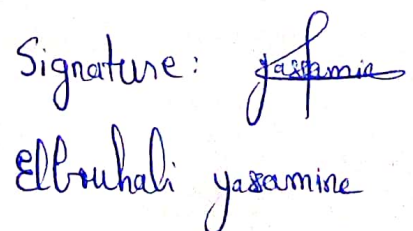 Signature: yassamine
Elbouhali yassamine